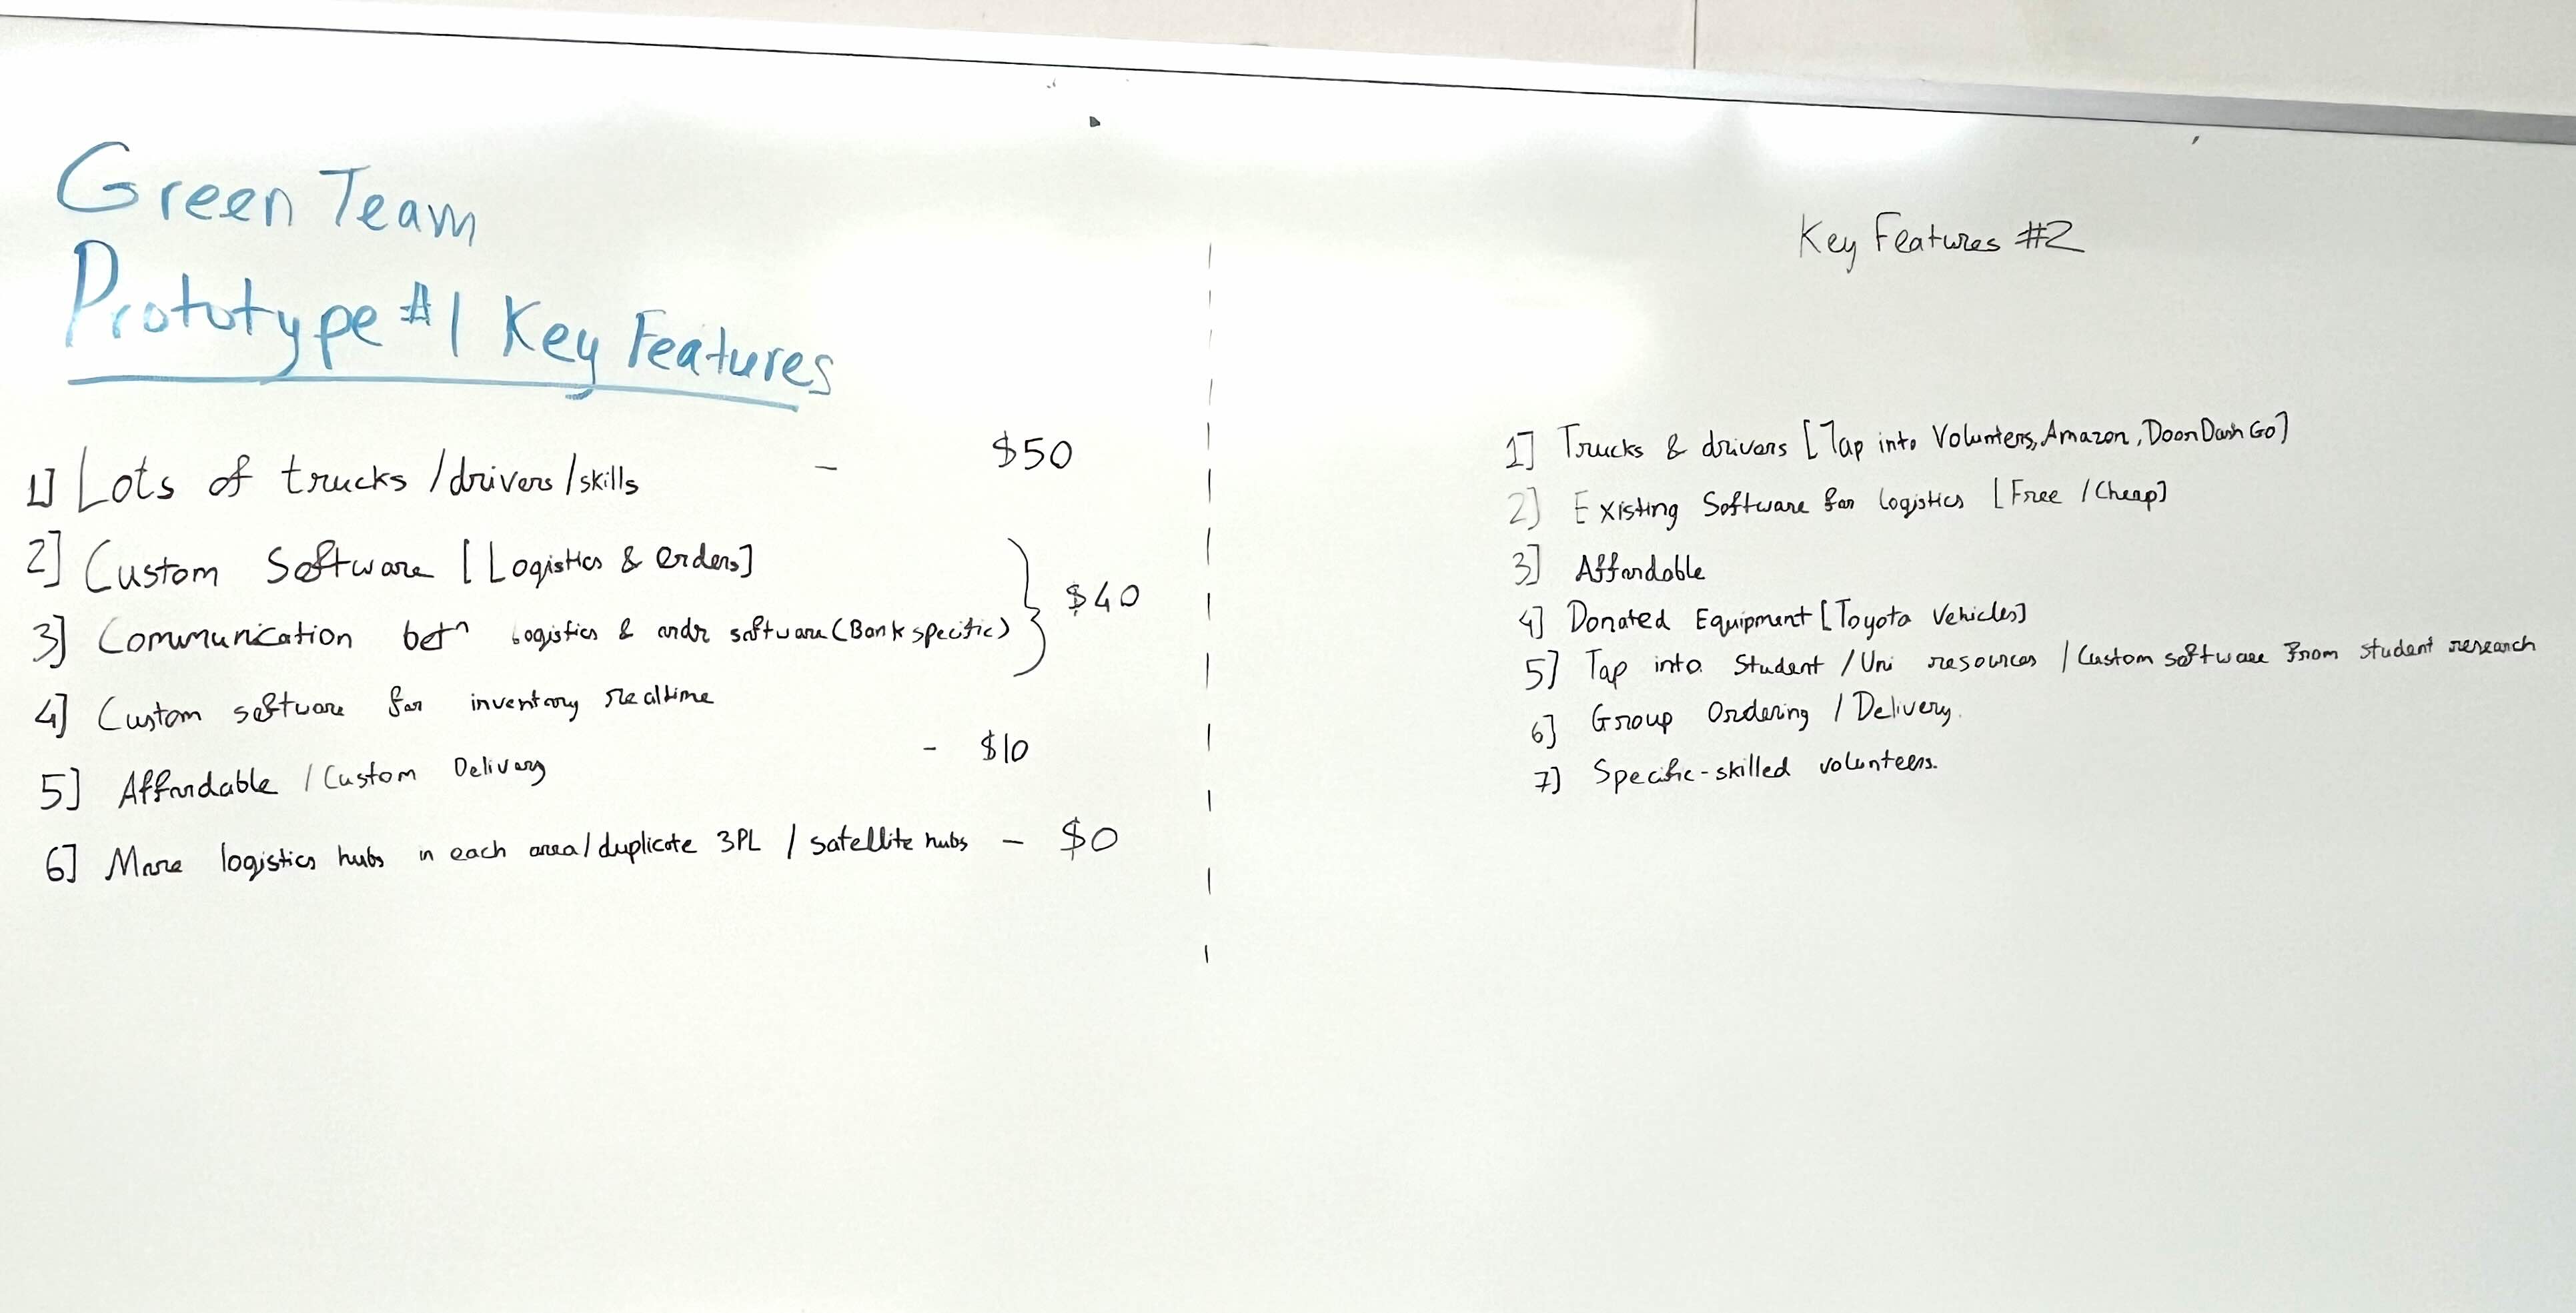 Green Team
Prototype #1 Key Features
1] Lots of trucks /drivers /skills - $50
2] Custom Software [Logistics & Orders]
3] Communication betn Logistics & order software (Bank specific) } $40
4] Custom software for inventory realtime
5] Affordable / Custom Delivery - $10
6] More logistics hubs in each area/duplicate 3PL / satellite hubs - $0
Key Features #2
1] Trucks & drivers [Tap into Volunters, Amazon, DoorDash Go]
2] Existing Software for logistics [Free / Cheap]
3] Affordable
4] Donated Equipment [Toyota Vehicles]
5] Tap into Student / Uni resources / Custom software From student research
6] Group Ordering / Delivery.
7] Specific-skilled volunteers.